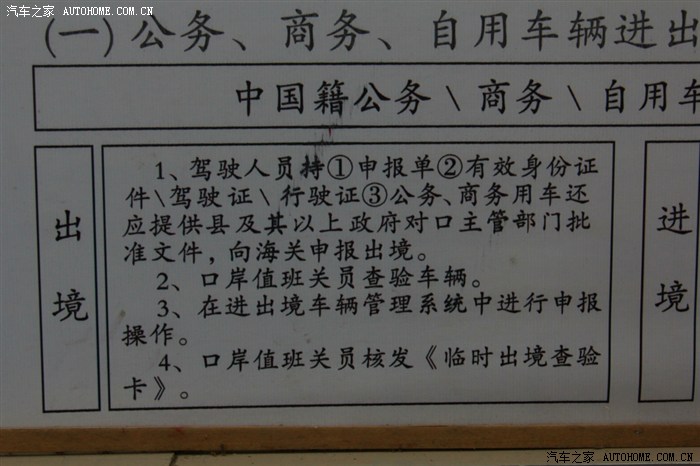 汽车之家 AUTOHOME.COM.CN
(一)公务、商务、自用车辆进出
中国籍公务\商务\自用车
出境
1、驾驶人员持①申报单②有效身份证
件\驾驶证\行驶证③公务、商务用车还
应提供县及其以上政府对口主管部门批
准文件，向海关申报出境。
2、口岸值班关员查验车辆。
3、在进出境车辆管理系统中进行申报
操作。
4、口岸值班关员核发《临时出境查验
卡》。
进境
汽车之家 AUTOHOME.COM.CN